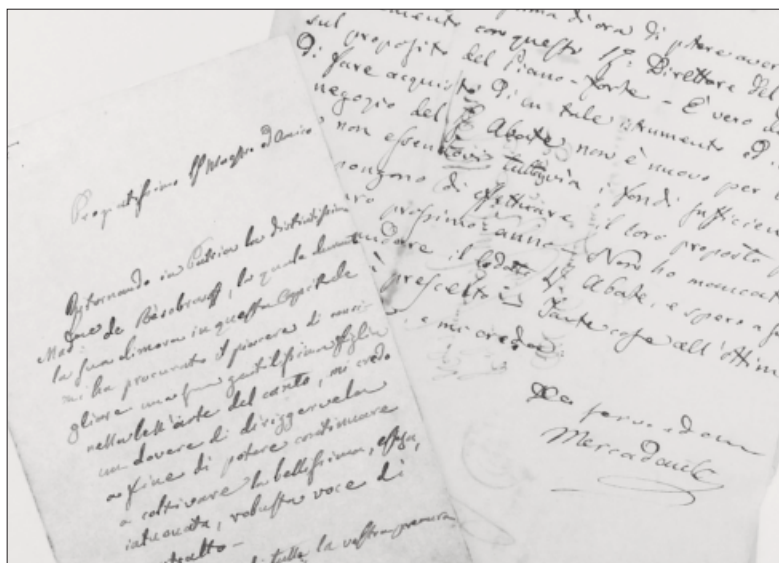 Pregiatissimo Sig Maestro d'Amico
Ritornando in Patria la distintissima
Mad: de
la sua dimora in questa Capitale
mi ha procurato il piacere di consi-
gliare una sua gentilissima figlia
nella bell'arte del canto, mi credo
un dovere di diriggervela
a fine di potere continuare
a coltivare la bellissima, estesa,
intuonata, robusta voce di
di tutta la vostra premura
di ora di potere aver
con questo Sig. Direttore del
sul proposito del Piano-forte - È vero
di fare acquisto di un tale strumento ed
negozio del Sig Abate non è nuovo per
non essendovi tuttavia i fondi sufficien
pongono di effettuare il loro proposto
prossimo anno - Non ho mancato
il lodato Sig Abate, e spero
tante cose all'ottim
e mi creda
Mercadante